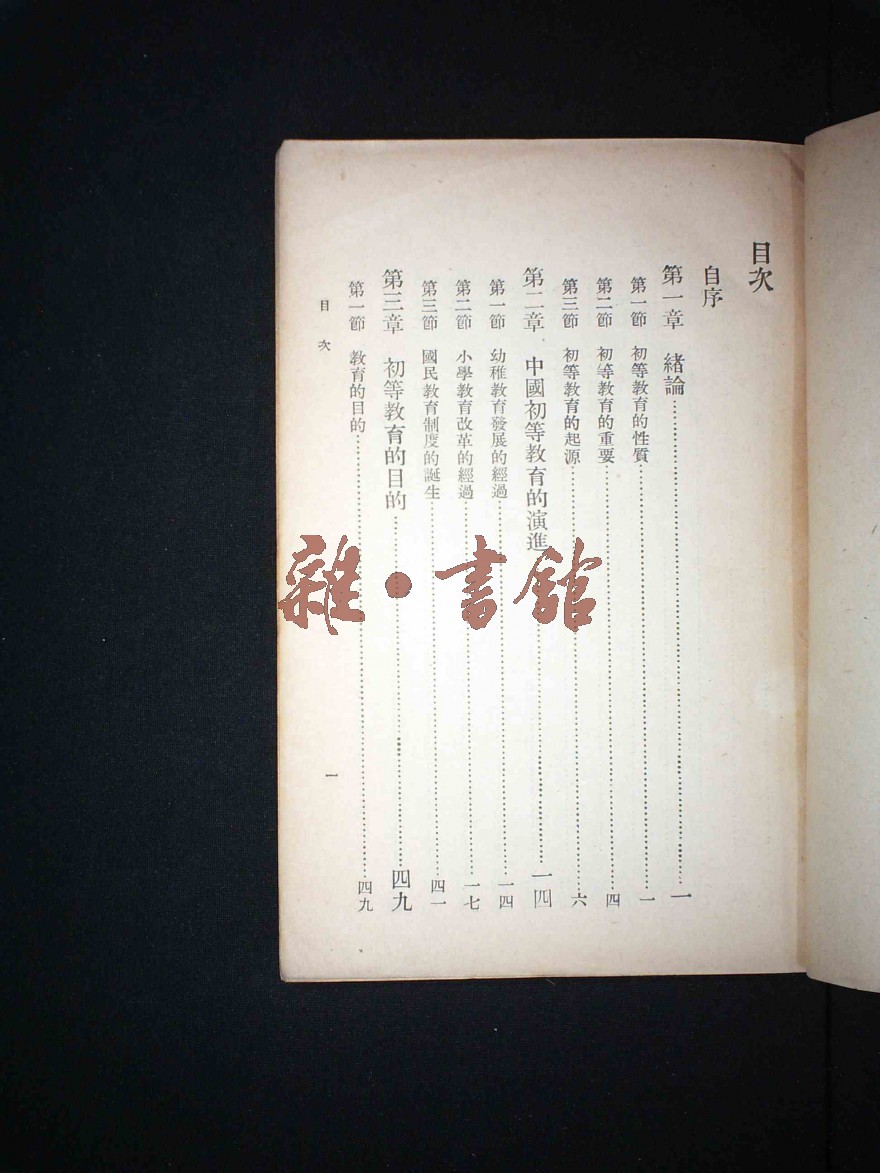 目次
自序
第一章 緒論……………………一
第一節 初等教育的性質……………………一
第二節 初等教育的重要……………………四
第三節 初等教育的起源……………………六
第二章 中國初等教育的演進……………………一四
第一節 幼稚教育發展的經過……………………一四
第二節 小學教育改革的經過……………………一七
第三節 國民教育制度的誕生……………………四一
第三章 初等教育的目的……………………四九
第一節 教育的目的……………………四九
目次
一
雜·書館